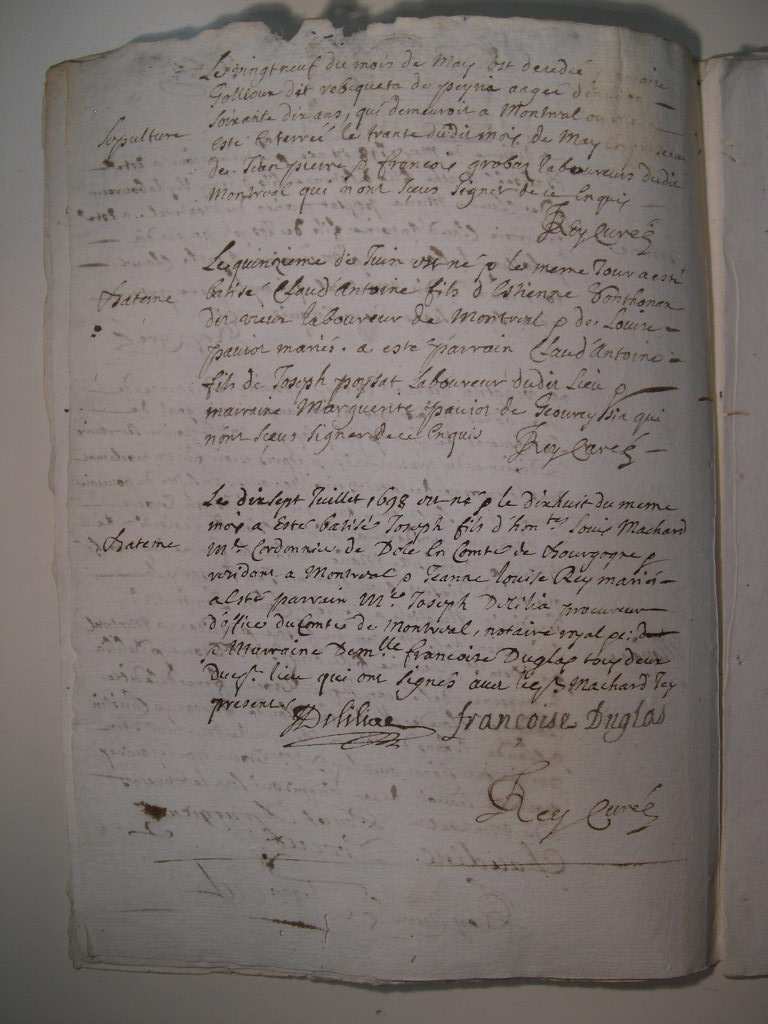 Le vingt neuf du mois de May est decedé
Golliour dit robequeta de peyria aagee d'environ
Soixante dix ans, qui demeuroit a Montreal
Sepulture
esté Enterreé le trante dudit mois de May
de Jean pierre & françois grobaz laboureurs dudit
Montreal qui n'ont sçeus signer de ce Enquis
Rey Curé
Le quinzieme de Juin est né & le meme Jour a esté
Bateme
batisé Claud'Antoine fils d'Estienne Ponthonox
dit vieux laboureur de Montreal & de Louise
paviot mariés. a esté parrain Claud'Antoine
fils de Joseph poysat laboureur dudit Lieu &
marraine Marguerite paviot de Geovreyssia qui
n'ont sçeus signer de ce Enquis
Rey Curé
Le dixsept Juillet 1698 est né & le dixhuit du meme
mois a esté batisé Joseph fils d'hon.te Louis Machard
Bateme
M.re Cordonnier de Dole En Comté de Bourgogne &
residant a Montreal & Jeanne Louise Rey mariés
a esté parrain M.re Joseph Delilia procureur
d'office du Comté de Montreal, notaire royal
& Marraine Dem.lle francoise Duglas tous deux
dud.t lieu qui ont signés avec led.t Machard Icy
present
Delilia
francoise Duglas
Rey Curé